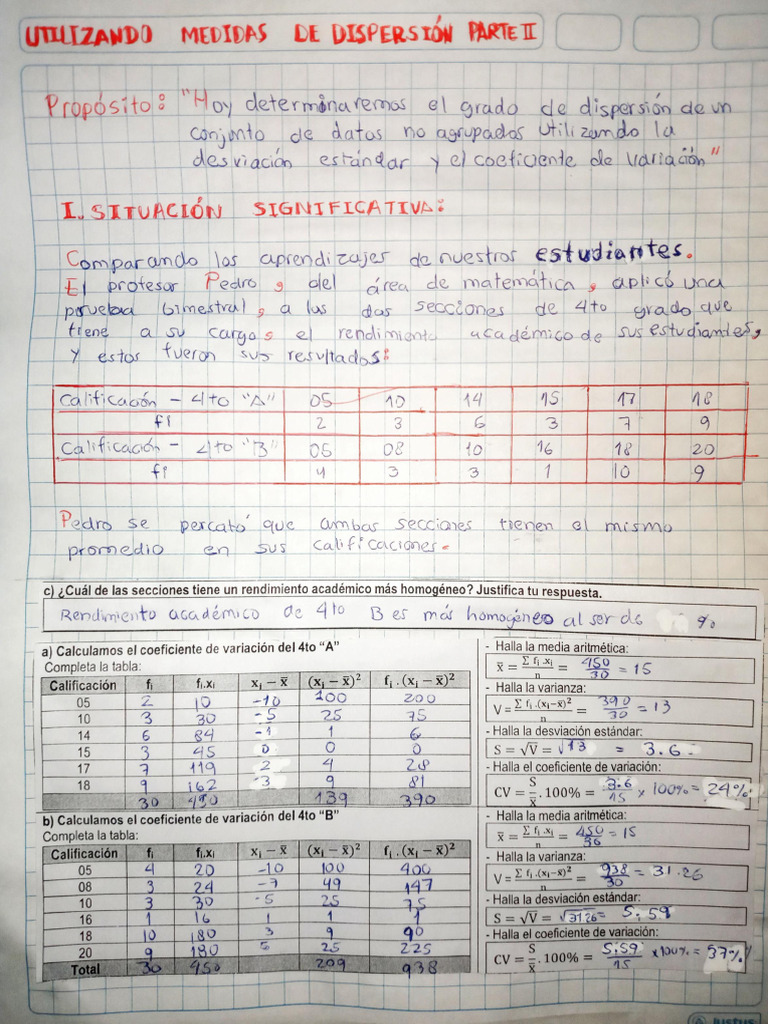 UTILIZANDO MEDIDAS DE DISPERSIÓN PARTE II
Propósito: "Hoy determinaremos el grado de dispersión de un
conjunto de datos no agrupados utilizando la
desviación estándar y el coeficiente de variación"
I. SITUACIÓN SIGNIFICATIVA:
Comparando los aprendizajes de nuestros estudiantes.
El profesor Pedro, del área de matemática, aplicó una
prueba bimestral, a las dos secciones de 4to grado que
tiene a su cargo, el rendimiento académico de sus estudiantes,
y estos fueron sus resultados:
Calificación - 4to "A" 05 10 14 15 17 18
fi 2 3 6 3 7 9
Calificación - 4to "B" 05 08 10 16 18 20
fi 4 3 3 1 10 9
Pedro se percató que ambas secciones tienen el mismo
promedio en sus calificaciones.
c) ¿Cuál de las secciones tiene un rendimiento académico más homogéneo? Justifica tu respuesta.
Rendimiento académico de 4to B es más homogéneo al ser de %
a) Calculamos el coeficiente de variación del 4to "A"
Completa la tabla:
Calificación fᵢ fᵢ.xᵢ xᵢ – x̄ (xᵢ – x̄)² fᵢ.(xᵢ – x̄)²
05 2 10 -10 100 200
10 3 30 -5 25 75
14 6 84 -1 1 6
15 3 45 0 0 0
17 7 119 2 4 28
18 9 162 3 9 81
30 450 139 390
- Halla la media aritmética:
x̄ = Σ fᵢ.xᵢ / n = 450/30 = 15
- Halla la varianza:
V = Σ fᵢ.(xᵢ–x̄)² / n = 390/30 = 13
- Halla la desviación estándar:
S = √V = √13 = 3.6
- Halla el coeficiente de variación:
CV = S/x̄ . 100% = 3.6/15 x 100% = 24%
b) Calculamos el coeficiente de variación del 4to "B"
Completa la tabla:
Calificación fᵢ fᵢ.xᵢ xᵢ – x̄ (xᵢ – x̄)² fᵢ.(xᵢ – x̄)²
05 4 20 -10 100 400
08 3 24 -7 49 147
10 3 30 -5 25 75
16 1 16 1 1 1
18 10 180 3 9 90
20 9 180 5 25 225
Total 30 450 209 938
- Halla la media aritmética:
x̄ = Σ fᵢ.xᵢ / n = 450/30 = 15
- Halla la varianza:
V = Σ fᵢ.(xᵢ–x̄)² / n = 938/30 = 31.26
- Halla la desviación estándar:
S = √V = √31.26 = 5.59
- Halla el coeficiente de variación:
CV = S/x̄ . 100% = 5.59/15 x 100% = 37%
Justus